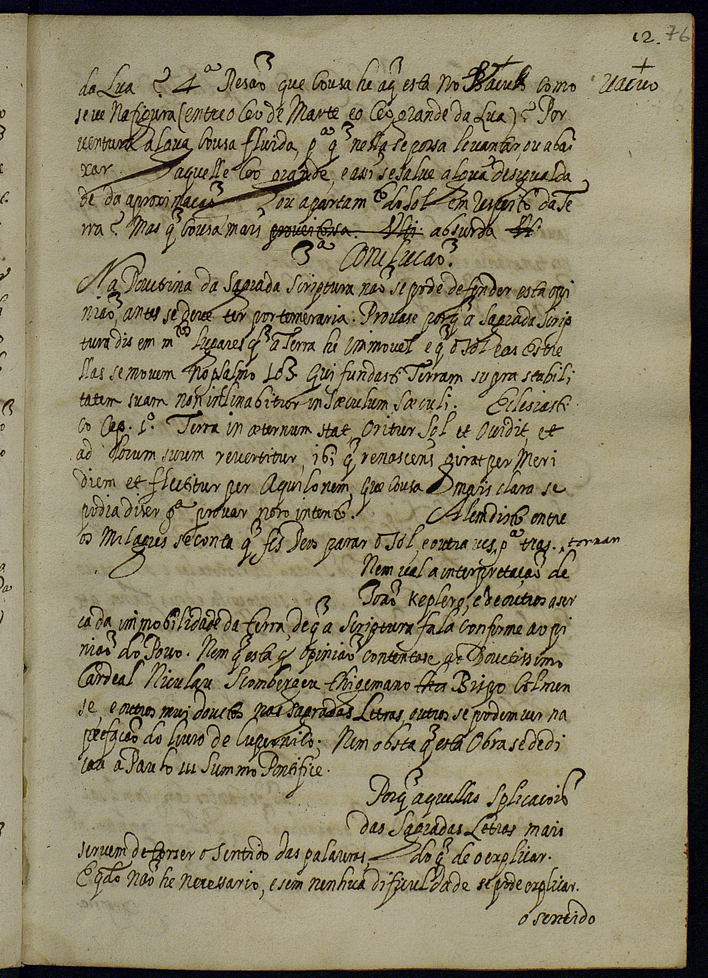 12. 76
da Lua? 4ª Resaõ que Cousa he aq̃ esta no Vacuo como
Vacuo
se ve Na figura (entre o Ceo de Marte e o Ceo grande da Lua)? Por
ventura algua Cousa fluida, pª q̃ nella se possa levantar, ou abai
xar aquelle Ceo grande, e assi se salve algua desigualda
de da aproximaçaõ ou apartamto do Sol em respeito da Te
rra? Mas q̃ Cousa mais absurda
3ª Conclusaõ.
Na Doutrina da Sagrada Scriptura naõ se pode defender esta opi
niaõ, antes se deve ter por temeraria. Provase porq̃ a Sagrada Scrip
tura dis em mtos lugares q̃ a Terra he immovel e q̃ o Sol e as estre
llas se movem no psalmo 103 Qui fundasti Terram supra stabili
tatem suam non inclinabitur in Sæculum Sæculi. Eclesiasti
co Cap. 1º. Terra in æternum stat, Oritur Sol et Occidit, et
ad Locum suum revertitur, ibi q̃ renascens girat per Meri
diem et flectitur per Aquilonem, que cousa mais clara se
podia diser pª provar nosso intento. Alem disto entre
os Milagres se conta q̃ fes Deos parar o Sol, e outra ves, pª tras, tornar
Nem val a interpretaçaõ de
Joaõ Keplero, e de outros aser
ca da immobilidade da terra, de q̃ a Scriptura fala conforme ao opi
niaõ do Povo. Nem q̃ esta opiniaõ contentase ao Doutissimo
Cardeal Niculau Scombergeu Bispo Colmen
se e outros mui doutos nas sagradas Letras, outros se podem ver na
prefaçaõ do Livro de Cupernico; Nem obsta q̃ esta Obra se dedi
cou a Paulo III Summo Pontifice.
Porq̃ aquellas Splicacois
das Sagradas Letras mais
servem de torser o Sentido das palavras, do q̃ de o explicar.
E qdo naõ he necessario, e sem nenhua dificuldade se pode explicar.
o sentido